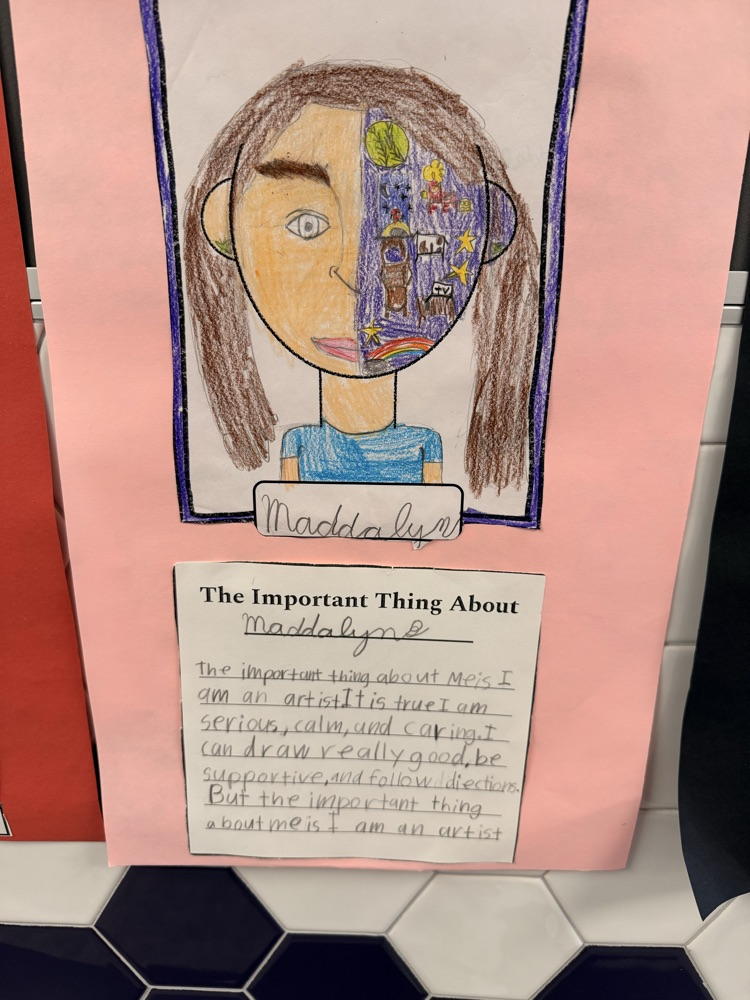 TV
Maddalyn
The Important Thing About
Maddalyn
The important thing about Me is I
am an artist It is true I am
serious, calm, and caring. I
can draw really good, be
supportive, and follow diections.
But the important thing
about me is I am an artist